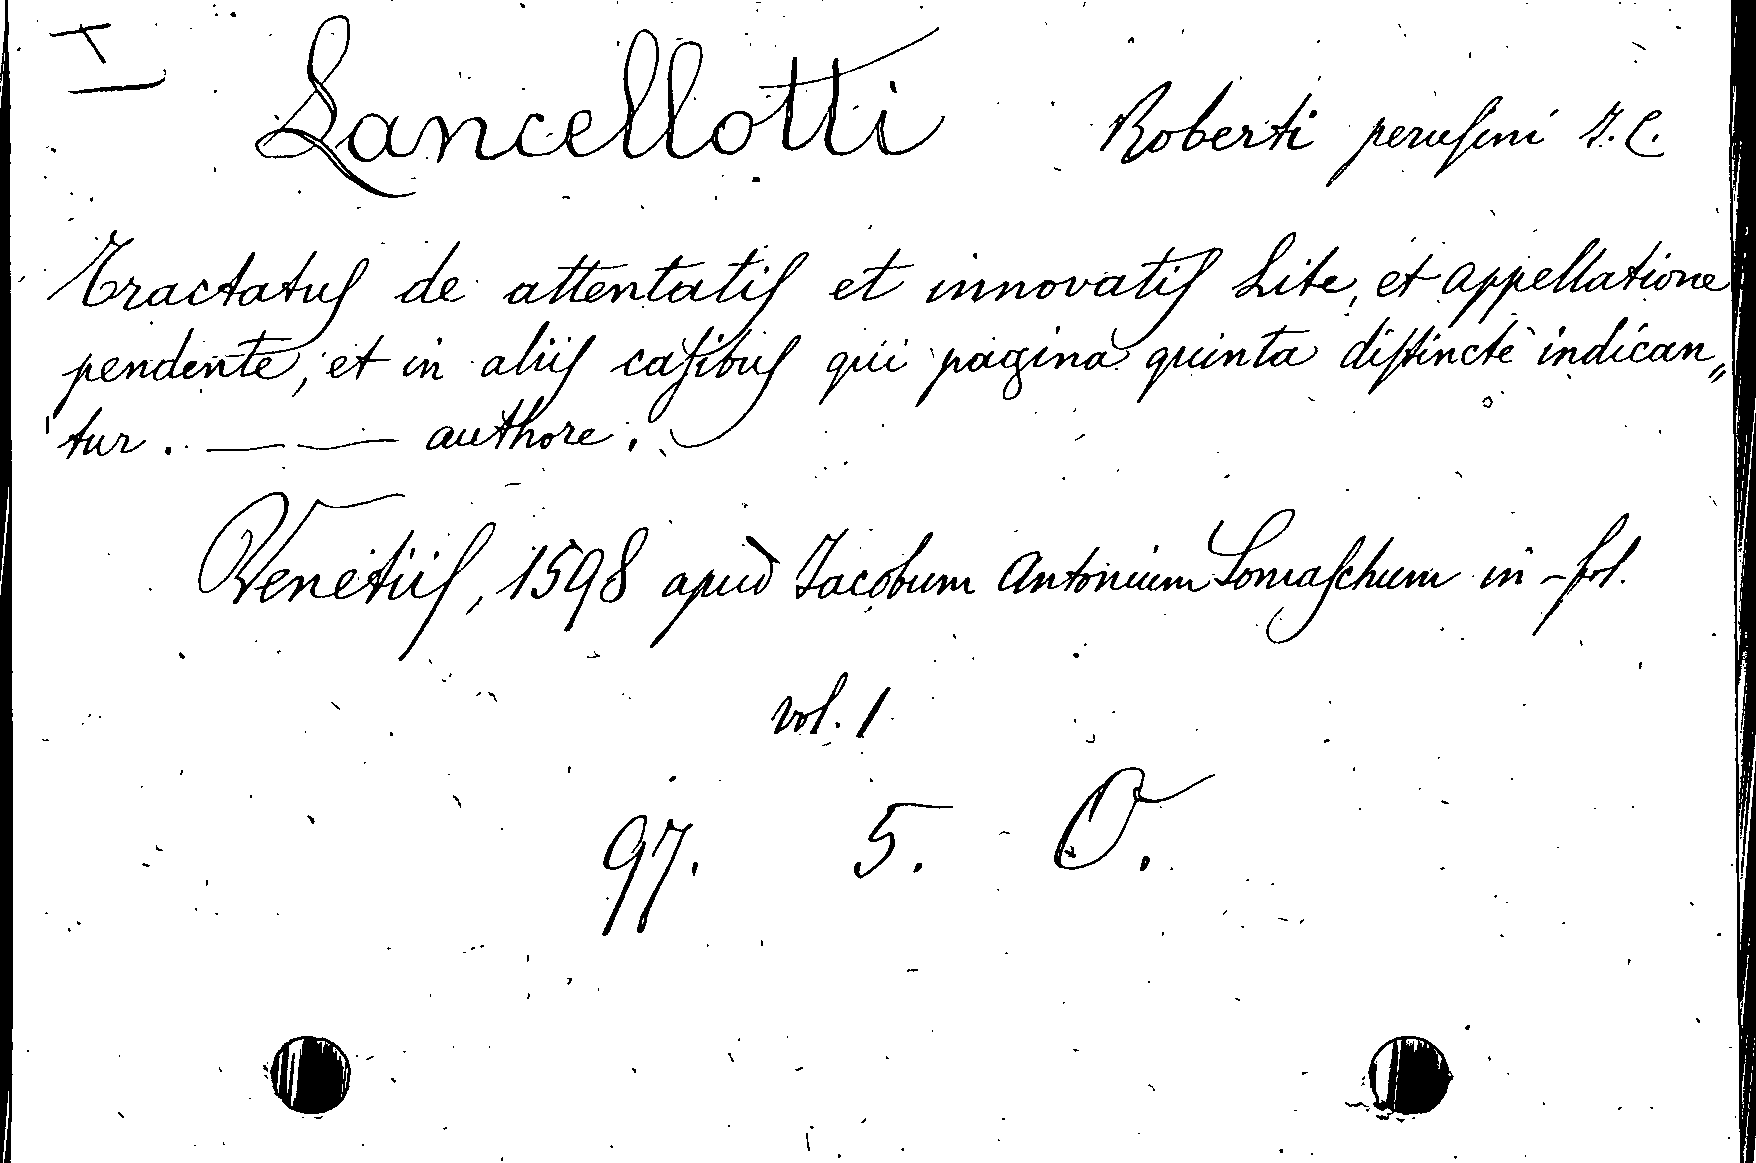 I
Lancellotti Roberti perusini J. C.
Tractatus de attentatis et innovatis Lite, et appellatione
pendente, et in aliis casibus qui pagina quinta distinctè indican„
tur. —— —— authore.
Venetiis, 1598 apud Jacobum Antonium Somaschum in-fol.
vol. 1
97. 5. O.